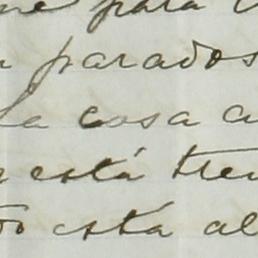 para
parados
la cosa a
está tre
esta al